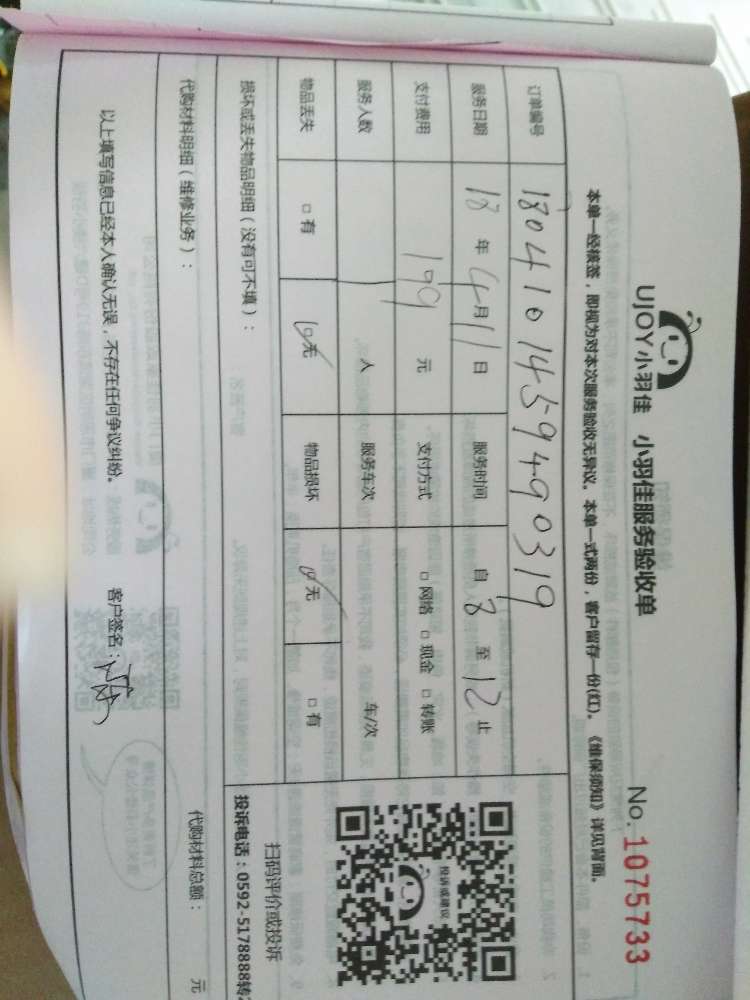 UJOY小羽佳 小羽佳服务验收单 No. 1075733
本单一经核签，即视为对本次服务验收无异议。本单一式两份，客户留存一份(红)。《维保须知》详见背面。
订单编号 180410145949031​9
服务日期 18 年 4 月 11 日 服务时间 自 8 至 12 止
支付费用 199 元 支付方式 □ 网络 □ 现金 □ 转账
服务人数 1 人 服务车次 车/次
物品丢失 □ 有 □ 无 物品损坏 □ 无 □ 有
投诉或建议
扫码评价或投诉
投诉电话：0592-5178888转2
损坏或丢失物品明细（没有可不填）：
代购材料明细（维修业务）： 代购材料总额： 元
以上填写信息已经本人确认无误，不存在任何争议纠纷。 客户签名：